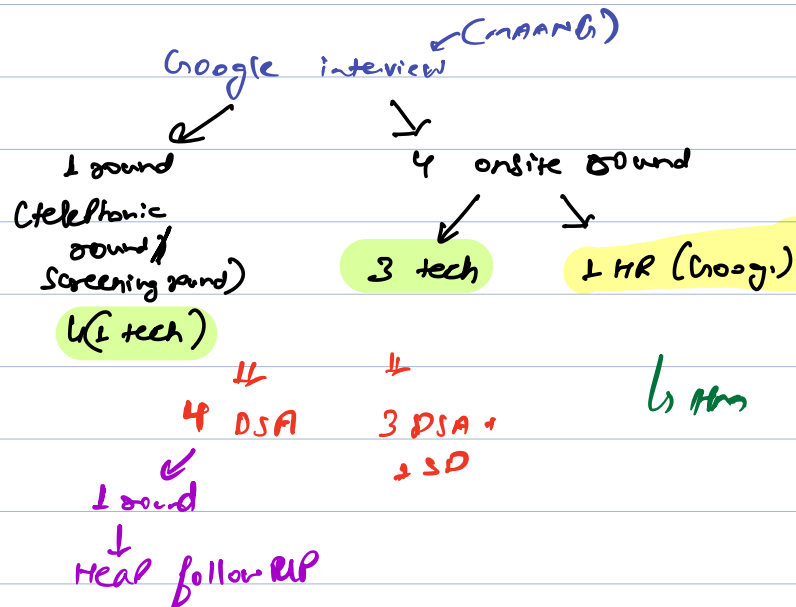 (MAANG)
Google interview
1 round
4 onsite round
(telephonic
round/
screening round)
3 tech
1 HR (Googi)
↳(1 tech)
4 DSA
3 DSA +
1 SD
↳ Hm
1 round
Heap follow up